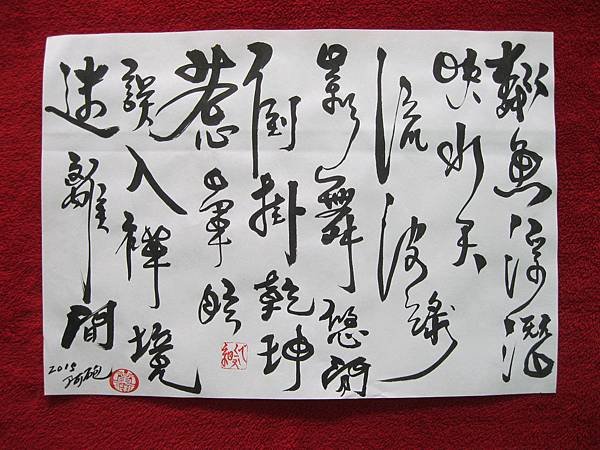 魚浮潛
映水天
流波綠
影舞悠閒
倒掛乾坤
惹暈眩
誤入禪境
迷離間
2015